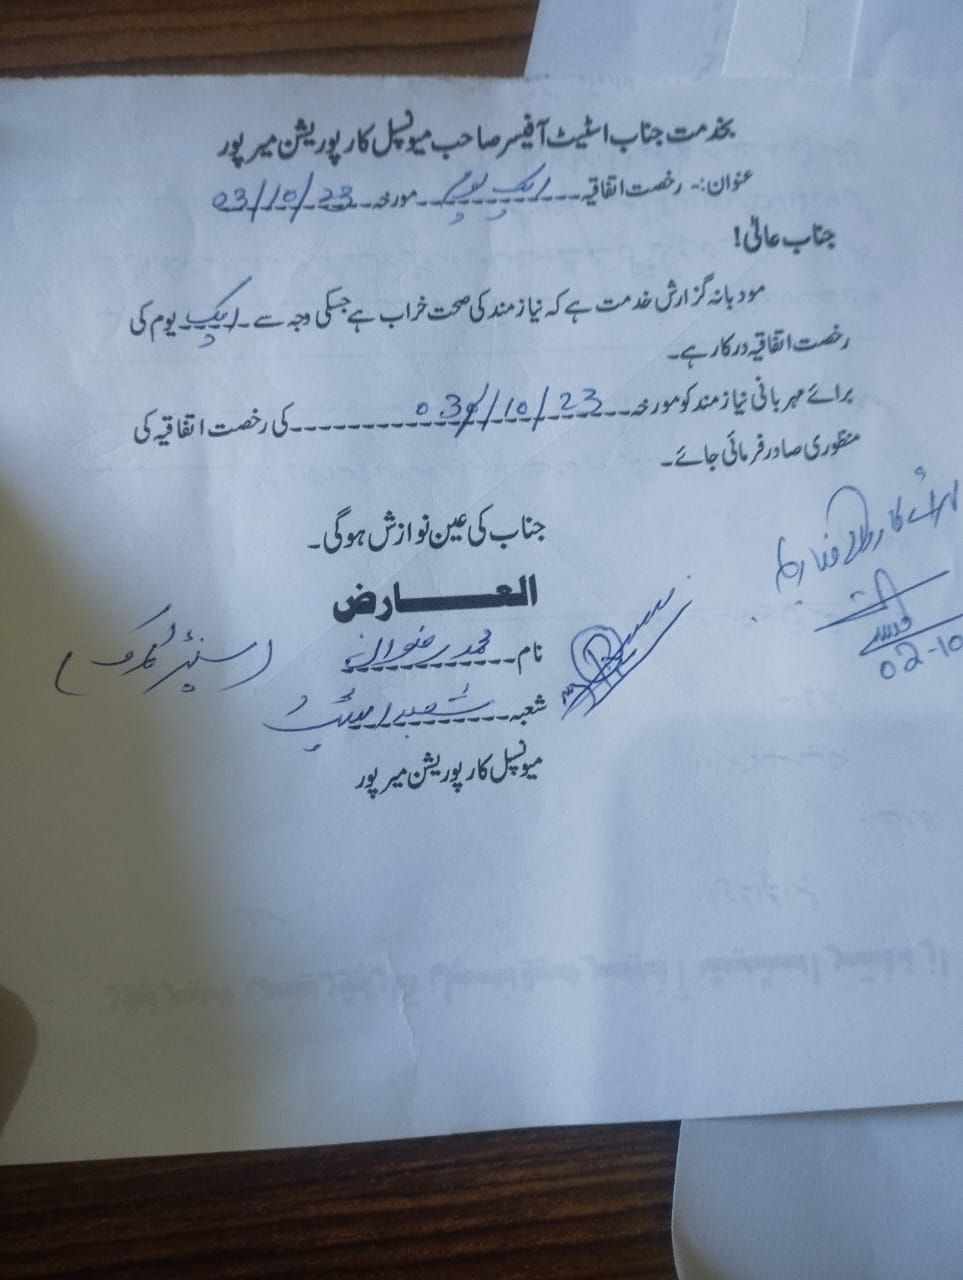 بخدمت جناب اسٹیٹ آفیسر صاحب میونسپل کارپوریشن میرپور
عنوان:- رخصت اتفاقیہ ایک یوم مورخہ 03/10/23
جناب عالی!
مودبانہ گزارش خدمت ہے کہ نیازمند کی صحت خراب ہے جسکی وجہ سے ایک یوم کی
رخصت اتفاقیہ درکار ہے۔
برائے مہربانی نیازمند کو مورخہ 03/10/23 کی رخصت اتفاقیہ کی
منظوری صادر فرمائی جائے۔
جناب کی عین نوازش ہوگی۔
العارض
نام محمد رضوان (سنیئر کلرک)
شعبہ شعبہ اسٹیٹ
میونسپل کارپوریشن میرپور
02-10